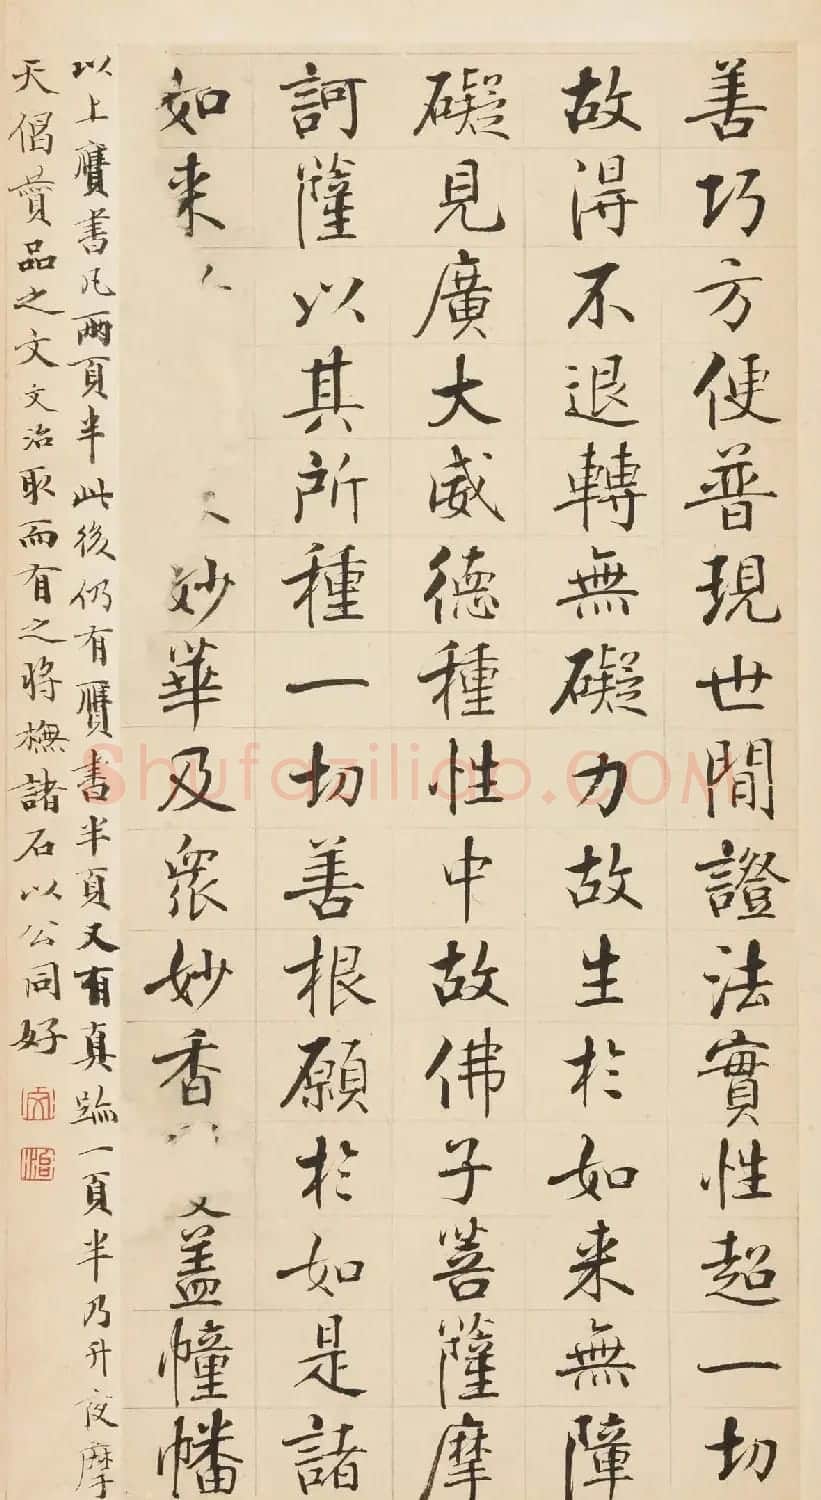 善巧方便普現世間證法實性超一切
故得不退轉無礙力故生於如来無障
礙見廣大威德種性中故佛子菩薩摩
訶薩以其所種一切善根願於如是諸
如来 妙華及衆妙香 蓋幢幡
以上贗書凡兩頁半此後仍有贗書半頁又有真跡一頁半乃升夜摩
天偈賛品之文文治取而有之将橅諸石以公同好
文
治
Shufaziliao.COM